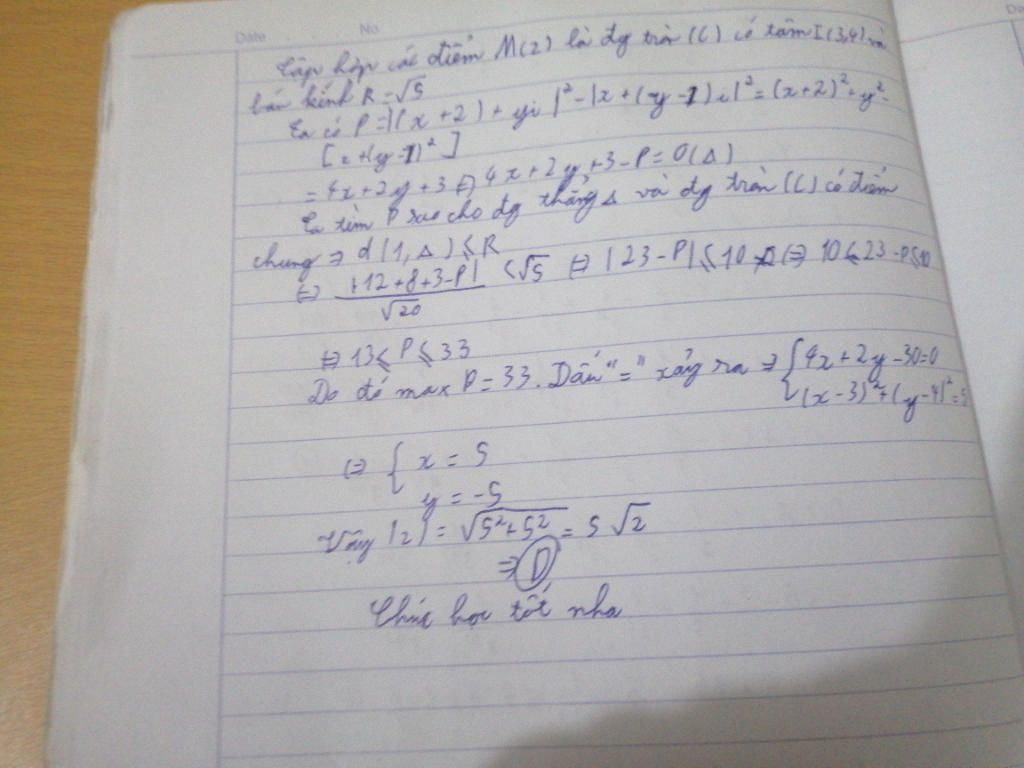 Date No
Tập hợp các điểm M(z) là đg tròn (C) có tâm I(3,4) và
bán kính R = √5
Ta có P = |(x + 2) + yi|² - |x + (y - 1)i|² = (x+2)² + y² -
[x + (y - 1)²]
= 4x + 2y + 3 ⇔ 4x + 2y + 3 - P = 0 (Δ)
Ta tìm P sao cho đg thẳng Δ và đg tròn (C) có điểm
chung ⇒ d(1, Δ) ⩽ R
⇔ |12 + 8 + 3 - P| / √20 ⩽ √5 ⇔ |23 - P| ⩽ 10 ⇔ 10 ⩽ 23 - P ⩽ 10
⇔ 13 ⩽ P ⩽ 33
Do đó max P = 33. Dấu "=" xảy ra ⇒ { 4x + 2y - 30 = 0
(x - 3)² + (y - 4)² = 5
⇔ { x = 5
y = -5
Vậy |z| = √5² + 5² = 5√2
⇒ D
Chúc học tốt nha